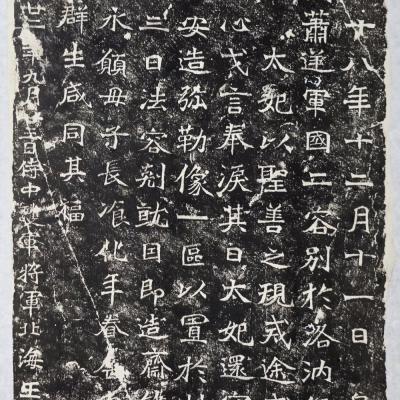 廿八年十二月十一日皇
蕭逆軍國二容別於洛汭行
太妃以聖善之規戒途戎
心戎言奉淚其日太妃還家
安造弥勒像一區以置於此
三日法容剋就因即造齋
永願母子長飡化年眷屬
群生咸同其福
廿二年九月廿三日侍中護軍將軍北海王